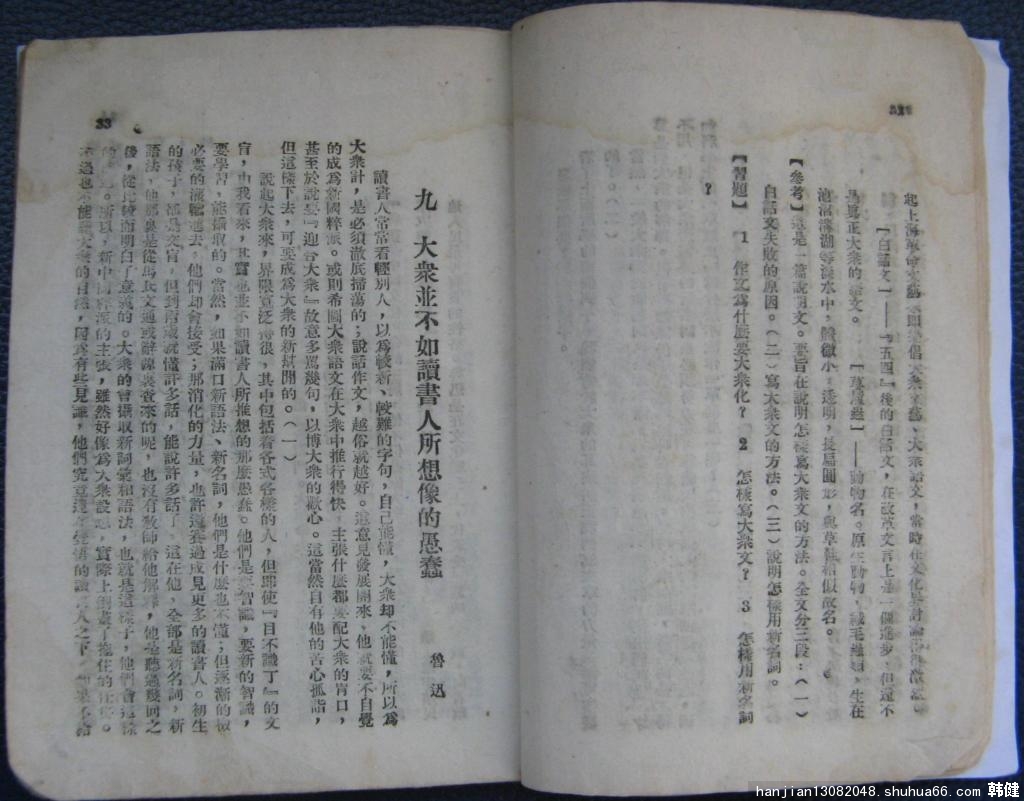 32
起上海革命文藝
大衆文藝、大衆語文，當時在文化界討論
【白話文】——『五四』後的白話文，在改革文言上是一個進步，但還不
爲眞正大衆的語文。【草履蟲】——動物名。原生動物，
生在
池沼溝湖等淡水中，體微小，透明，長扁圓形，與草鞋相似故名。
【參考】這是一篇說明文。要旨在說明怎樣寫大衆文的方法。全文分三段：（一）
白話文失敗的原因。（二）寫大衆文的方法。（三）說明怎樣用新名詞。
【習題】 1 作文爲什麽要大衆化？ 2 怎樣寫大衆文？ 3 怎樣用新名詞
？
33
九 大衆並不如讀書人所想像的愚蠢
魯迅
讀書人常常看輕別人，以爲較新、較難的字句，自己能懂，大衆却不能懂，所以爲
大衆計，是必須澈底掃蕩的；說話作文，越俗就越好。這意見發展開來，他就要不自覺
的成爲新國粹派。或則希圖大衆語文在大衆中推行得快，主張什麽都要配大衆的胃口，
甚至於說要『迎合大衆』，故意多罵幾句，以博大衆的歡心。這當然自有他的苦心孤詣，
但這樣下去，可要成爲大衆的新幫閒的。（一）
說起大衆來，界限寬泛得很，其中包括着各式各樣的人，但即使『目不識丁』的文
盲，由我看來，其實也並不如讀書人所推想的那麽愚蠢。他們是要智識，要新的智識，
要學習，能攝取的。當然，如果滿口新語法、新名詞，他們是什麽也不懂；但逐漸的檢
必要的灌輸進去，他們却會接受；那消化的力量，也許還賽過成見更多的讀書人。初生
的孩子，都是文盲，但到兩歲就懂許多話，能說許多話了，這在他，全部是新名詞，新
語法。他那裏是從馬氏文通或辭源裏查來的呢，也沒有敎師給他解釋，他是聽過幾回之
後，從比較而明白了意義的。大衆的會攝取新詞彙和語法，也就是這樣子，他們會這樣
的
所以，新國粹派的主張，雖然好像爲大衆設想，實際上倒盡了拖住的任務。
不過也不能聽大衆的自然，因爲有些見識，他們究竟還在覺悟的讀書人之下，如果不給
hanjian13082048. shuhua66. com 韩健